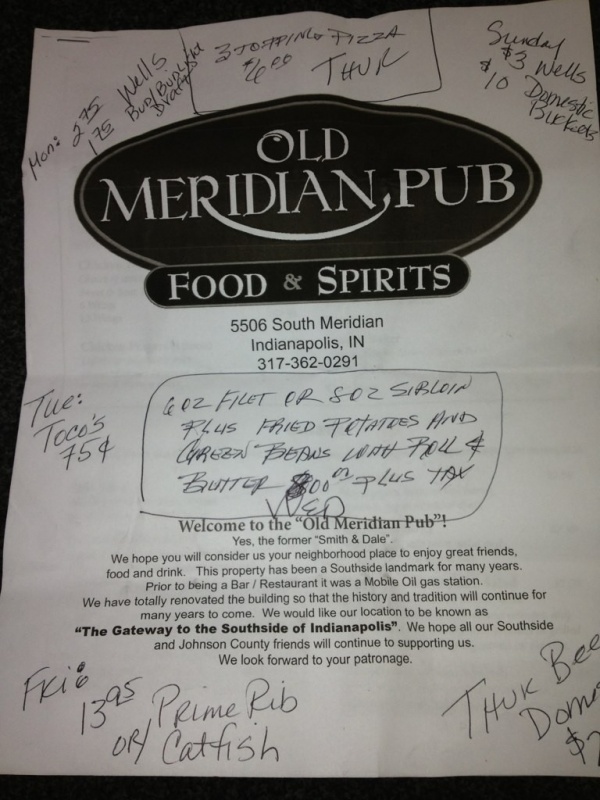 Mon: 2.75 Wells
1.75 Bud/Bud Light
Drafts
3 TOPPING PIZZA
$6.00
THUR
Sunday
$3 Wells
$10 Domestic
Buckets
OLD
MERIDIAN PUB
FOOD & SPIRITS
5506 South Meridian
Indianapolis, IN
317-362-0291
Tue:
Toco's
75¢
6 OZ FILET OR 8 OZ SIRLOIN
PLUS FRIED POTATOES AND
GREEN BEANS WITH ROLL &
BUTTER PLUS TAX
WED
Welcome to the "Old Meridian Pub"!
Yes, the former "Smith & Dale".
We hope you will consider us your neighborhood place to enjoy great friends,
food and drink. This property has been a Southside landmark for many years.
Prior to being a Bar / Restaurant it was a Mobile Oil gas station.
We have totally renovated the building so that the history and tradition will continue for
many years to come. We would like our location to be known as
"The Gateway to the Southside of Indianapolis". We hope all our Southside
and Johnson County friends will continue to supporting us.
We look forward to your patronage.
Fri:
13.95 Prime Rib
OR/ Catfish
THUR Bee
Dome
$